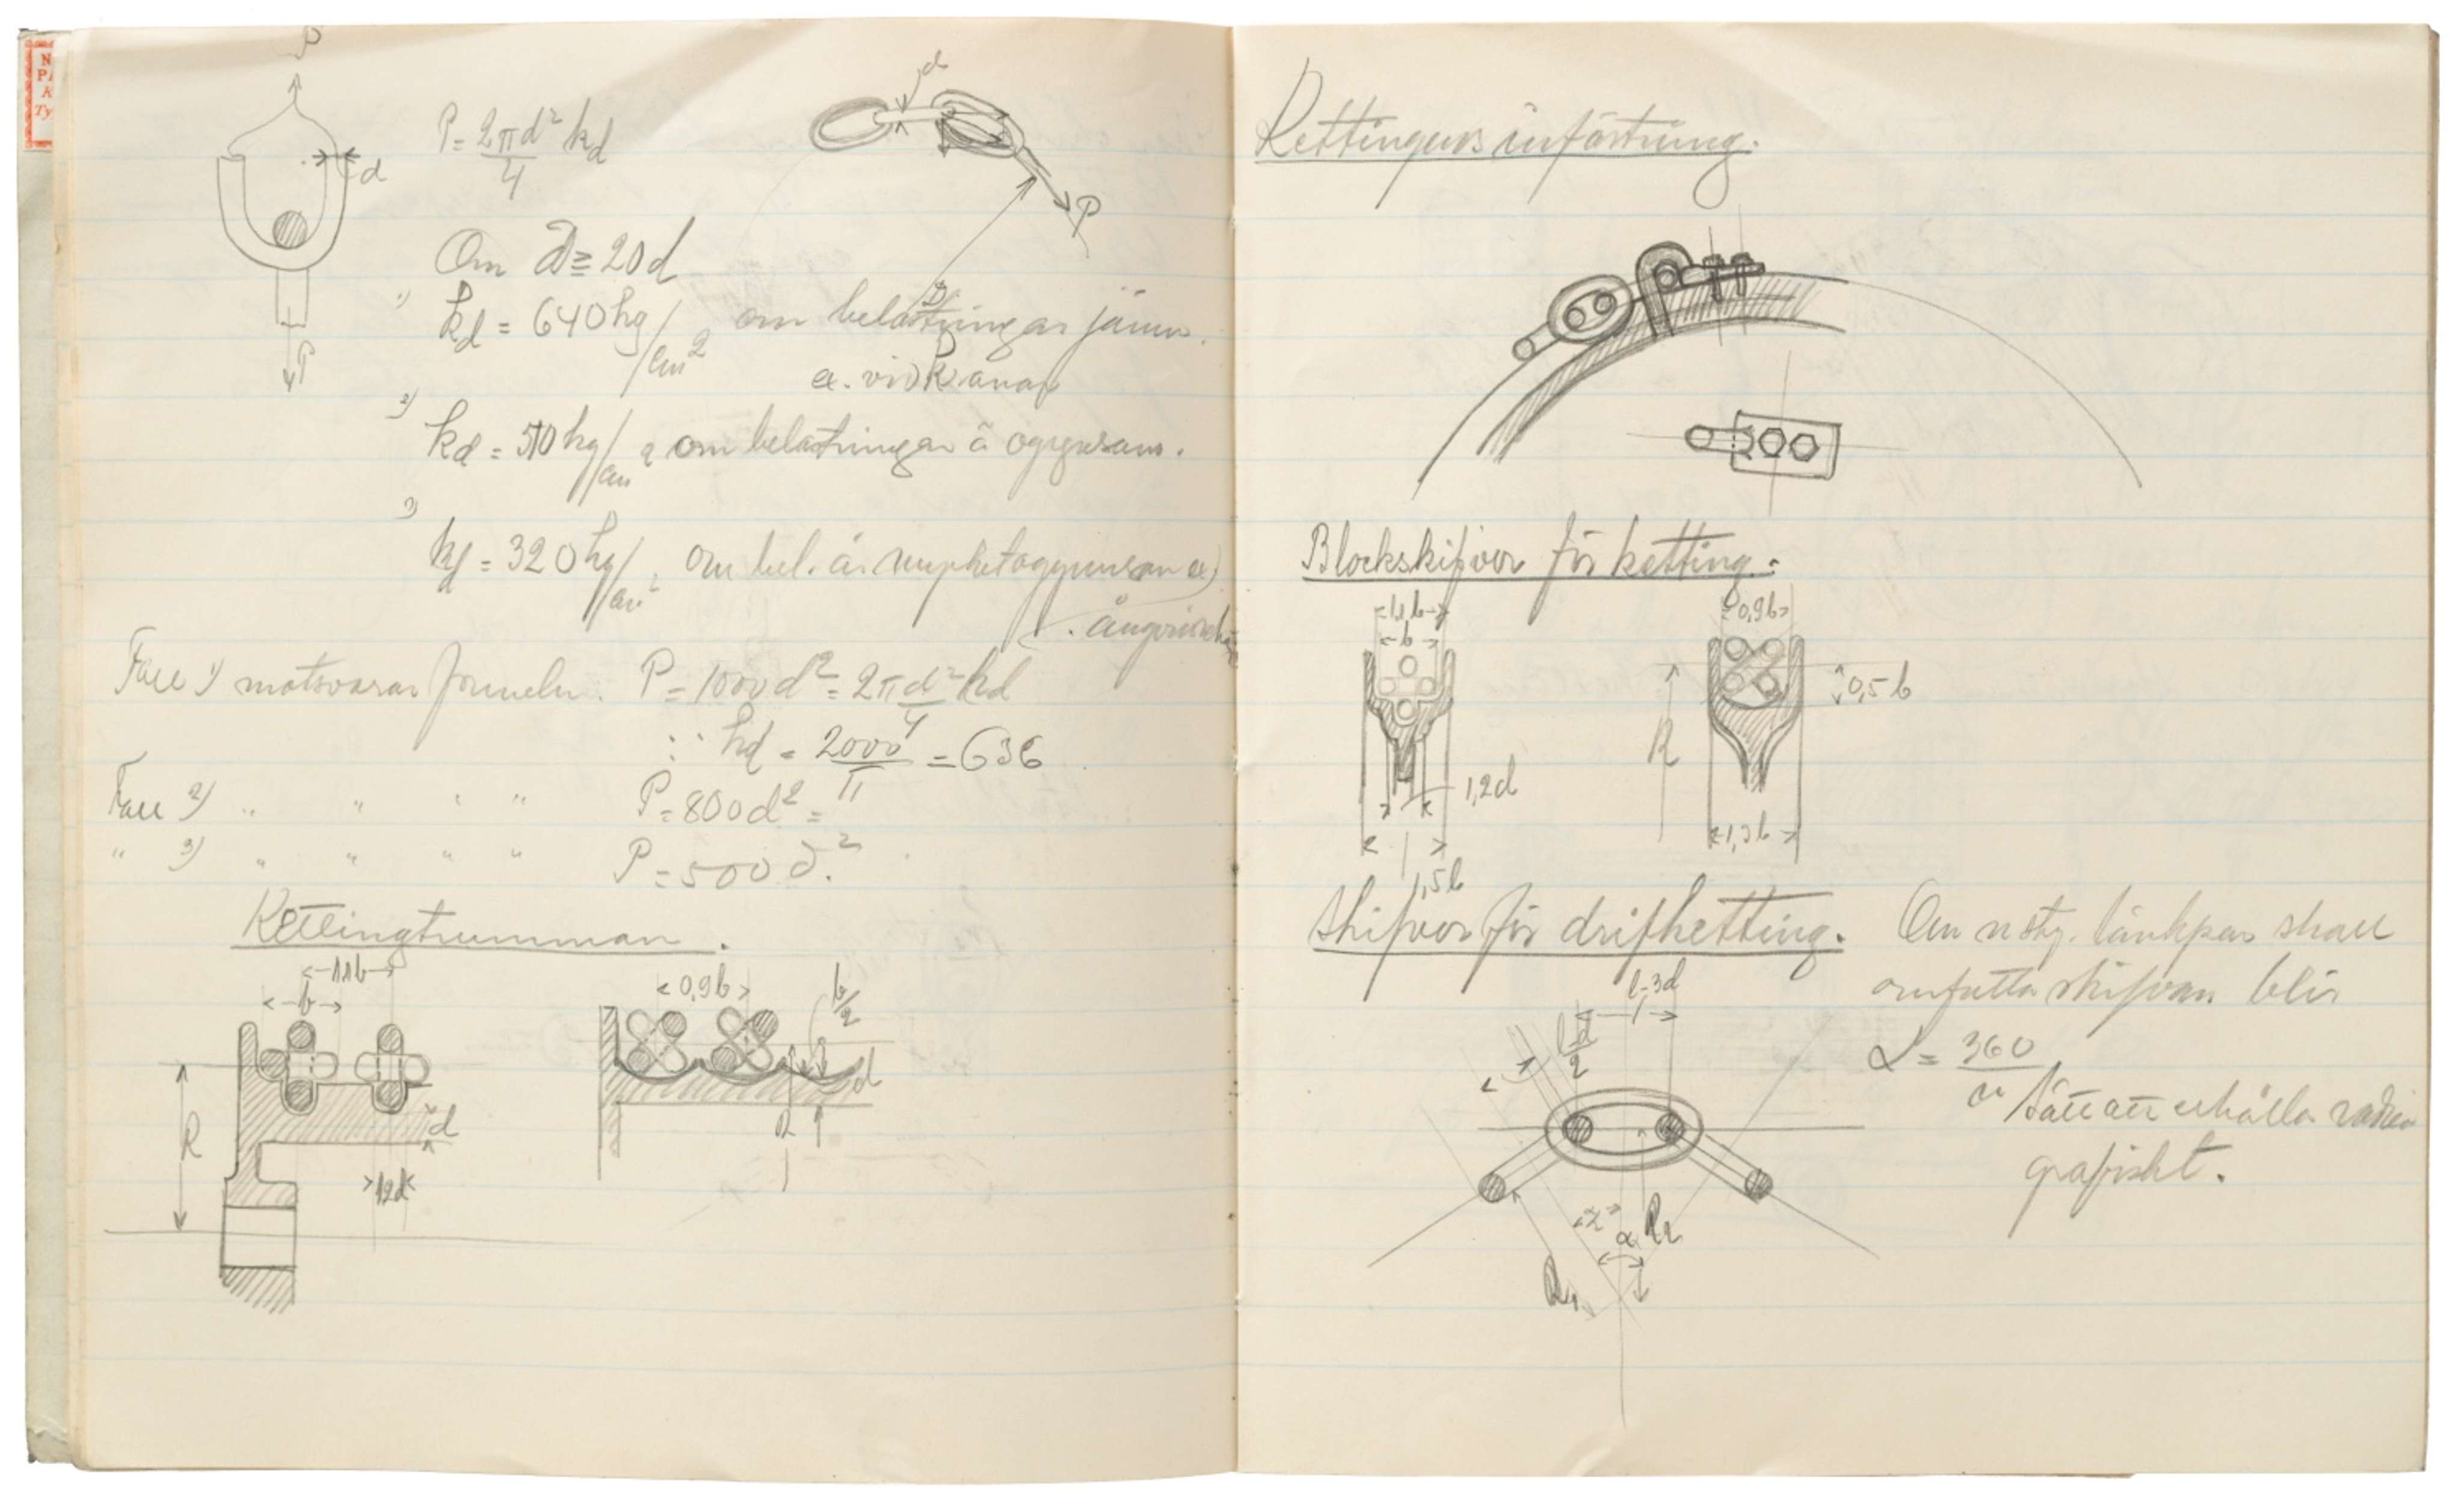 N
PA
K
Ty
P
d
P
P = 2πd²/4 kd
d
P
Om D ≥ 20d
D
1) kd = 640 kg/cm² om belastningar jämn.
ex. vid Kranar
2) kd = 510 kg/cm² om belastningar ä ogynsam.
3) kd = 320 kg/cm² om bel. är mycket ogynnsam ex
Fall 1) motsvarar formeln. P = 1000d² = 2πd²/4 kd
∴ kd = 2000/π = 636
Fall 2) " " " " P = 800d² =
" 3) " " " " P = 500d².
Kettingtrumman.
1,1b
b
0,9b
b/2
R
d
d
d
1,2d
Kettingens infästning.
Blockskifvor för ketting.
1,1b
b
0,9b
0,5b
R
1,2d
1,5b
1,3b
Skifvor för drifketting.
Om n sty. länkpar skall
omfatta skifvan blir
α = 360/n
Sätt att erhålla radien
grafiskt.
l-3d
l-d/2
α
R₂
R₁